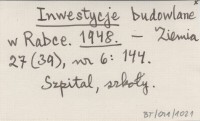 Inwestycje budowlane
w Rabce. 1948. – Ziemia
27 (39), nr 6: 144.
Szpital, szkoły.
BT/014/1021